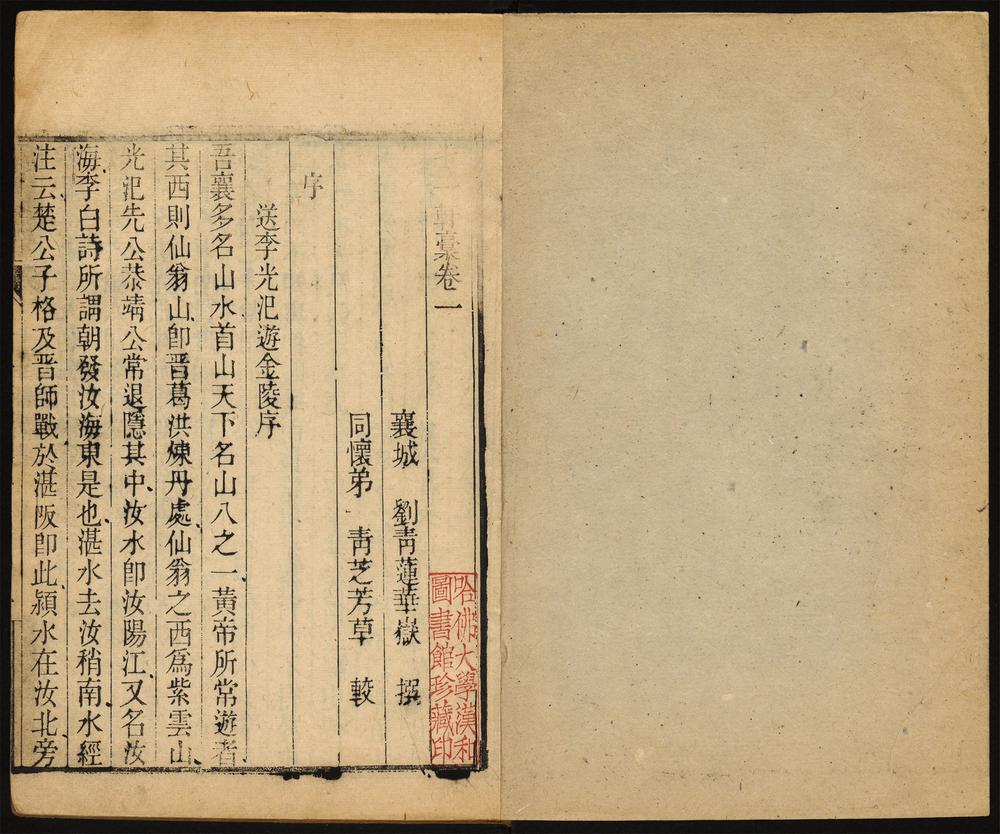 藁卷一
襄城　劉青蓮華嶽　撰
同懷弟　青芝芳草　較
序
送李光汜遊金陵序
吾襄多名山水首山天下名山八之一黃帝所常遊者
其西則仙翁山卽晋葛洪煉丹處仙翁之西爲紫雲山
光汜先公恭靖公常退隱其中汝水卽汝陽江又名汝
海李白詩所謂朝發汝海東是也湛水去汝稍南水經
注云楚公子格及晋師戰於湛阪卽此潁水在汝北旁
哈佛大學漢和
圖書館珍藏印